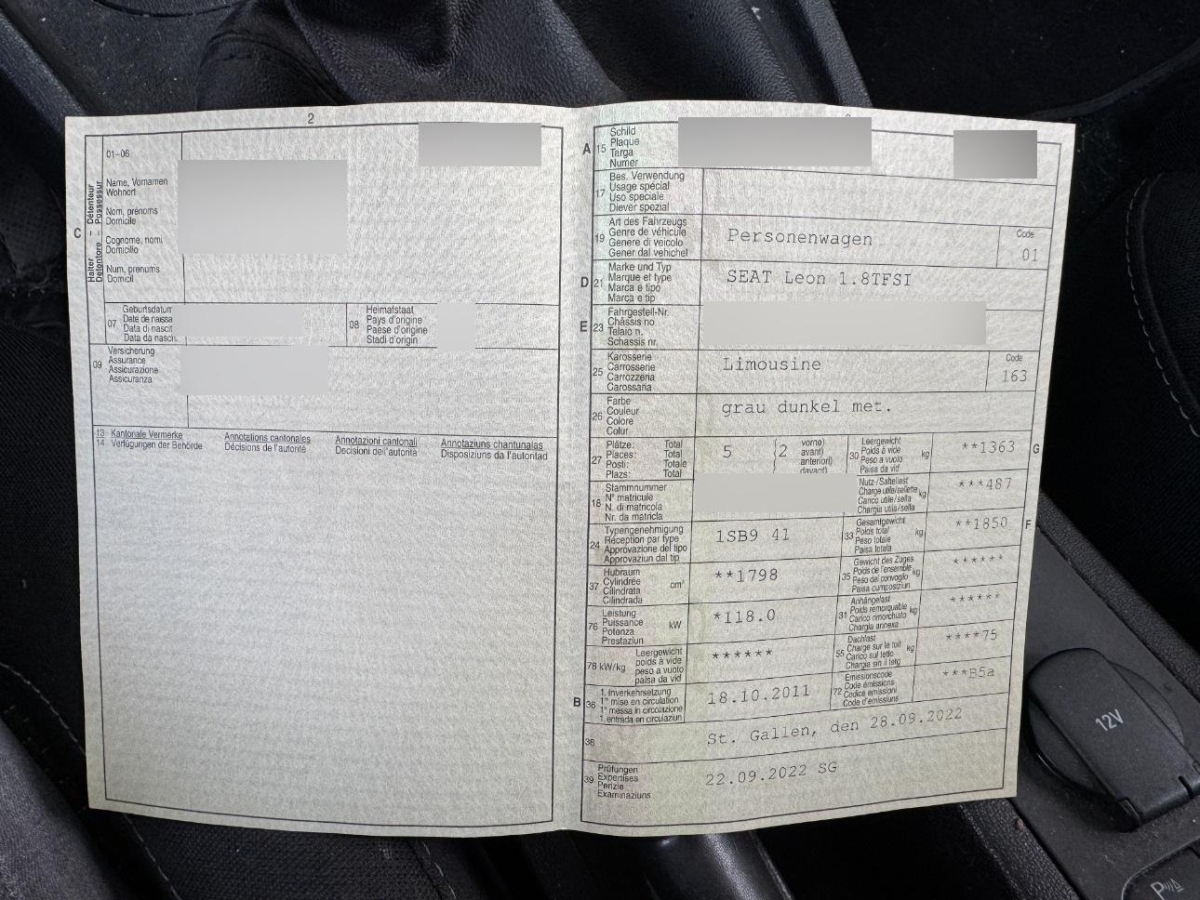 2
01-06
Halter – Détenteur
Detentore – Possessur
C
Name, Vornamen
Wohnort
Nom, prénoms
Domicile
Cognome, nomi
Domicilio
Num, prenums
Domicil
07
Geburtsdatum
Date de naissa
Data di nascit
Data da nascit
08
Heimatstaat
Pays d'origine
Paese d'origine
Stadi d'origin
09
Versicherung
Assurance
Assicurazione
Assicuranza
13 Kantonale Vermerke Annotations cantonales Annotazioni cantonali Annotaziuns chantunalas
14 Verfügungen der Behörde Décisions de l'autorité Decisioni dell'autorità Disposiziuns da l'autoritad
A 15
Schild
Plaque
Targa
Numer
17
Bes. Verwendung
Usage spécial
Uso speciale
Diever spezial
19
Art des Fahrzeugs
Genre de véhicule
Genere di veicolo
Gener dal vehichel
Personenwagen
Code
01
D 21
Marke und Typ
Marque et type
Marca e tipo
Marca e tip
SEAT Leon 1.8TFSI
E 23
Fahrgestell-Nr.
Châssis no
Telaio n.
Schassis nr.
25
Karosserie
Carrosserie
Carrozzeria
Carossaria
Limousine
Code
163
26
Farbe
Couleur
Colore
Colur
grau dunkel met.
27
Plätze: Total
Places: Total
Posti: Totale
Plazs: Total
5 (2
vorne)
avant)
anteriori)
davant)
30
Leergewicht
Poids à vide
Peso a vuoto
Paisa da vid
kg
**1363
G
18
Stammnummer
N° matricule
N. di matricola
Nr. da matricla
Nutz-/Sattellast
Charge utile/sellette
Carico utile/sella
Chargia utila/sella
kg
***487
24
Typengenehmigung
Réception par type
Approvazione del tipo
Approvaziun dal tip
1SB9 41
33
Gesamtgewicht
Poids total
Peso totale
Paisa totala
kg
**1850
F
37
Hubraum
Cylindrée
Cilindrata
Cilindrada
cm³
**1798
35
Gewicht des Zuges
Poids de l'ensemble
Peso del convoglio
Paisa cumposiziun
kg
******
76
Leistung
Puissance
Potenza
Prestaziun
kW
*118.0
31
Anhängelast
Poids remorquable
Carico rimorchiato
Chargia annexa
kg
******
78 kW/kg
Leergewicht
poids à vide
peso a vuoto
paisa da vid
******
55
Dachlast
Charge sur le toit
Carico sul tetto
Chargia sin il tetg
kg
****75
B 36
1. Inverkehrsetzung
1re mise en circulation
1a messa in circolazione
1. entrada en circulaziun
18.10.2011
72
Emissionscode
Code émissions
Codice emissioni
Code d'emissiuns
***B5a
38
St. Gallen, den 28.09.2022
39
Prüfungen
Expertises
Perizie
Examinaziuns
22.09.2022 SG
12V
P